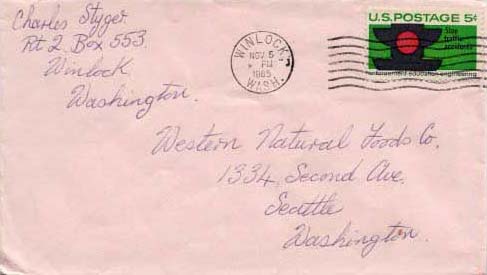 Charles Styger
Rt 2 Box 553.
Winlock
Washington.
WINLOCK,
NOV 5
PM
1965
WASH.
U.S. POSTAGE 5¢
Stop
traffic
accidents
enforcement · education · engineering
Western Natural Foods Co.
1334 Second Ave.
Seattle
Washington.